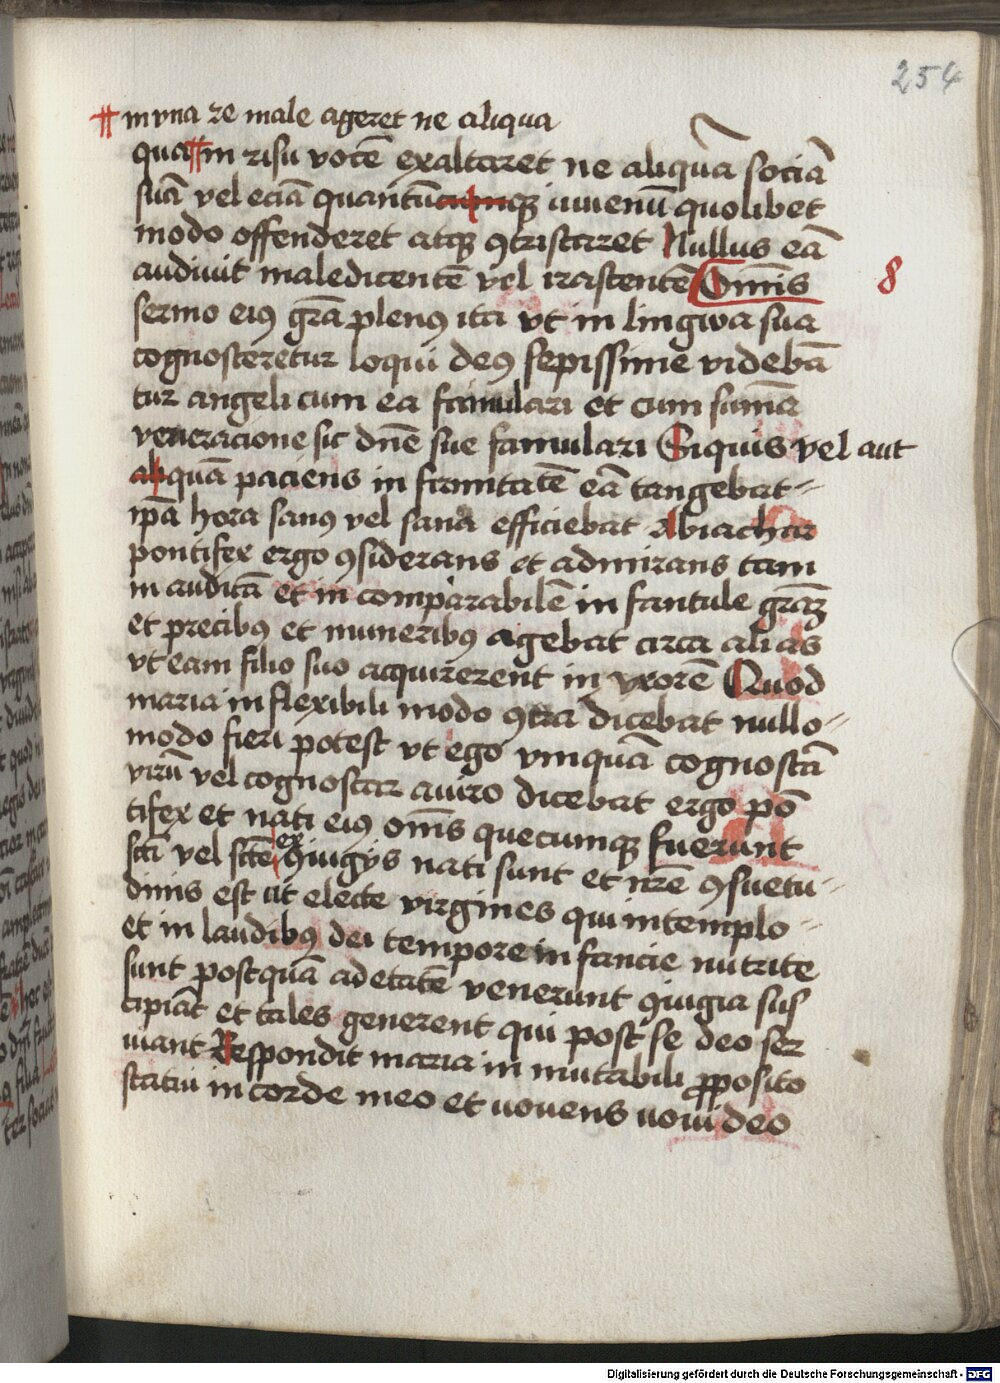 254
in vna re male ageret ne aliqua
qua in risu vocē exaltaret ne aliqua sociā
suā vel eciā quantū cumqꝫ iuuenū quolibet
modo offenderet atqꝫ ꝯtristaret Nullus eā
audiuit maledicentē vel irascentē Om̄is
8
sermo eiꝰ grā plenꝰ ita vt in lingwa sua
cognosceretur loqui deꝰ sepissime videbā
tur angeli cum ea famulari et cum sūma
veneracione sic dn̄e sue famulari Siquis vel aut
aliquā paciens in firmitatē eā tangebat
ip̄a hora sanꝰ vel sana efficiebat Abiachar
pontifex ergo ꝯsiderans et admirans tam
in auditā et in comparabilē in fantule grāꝫ
et precibꝰ et muneribꝰ agebat circa alias
vt eam filio suo acquirerent in vxorē Quod
maria in flexibili modo ꝯtra dicebat nullo
modo fieri potest vt ego vmquā cognoscā
virū vel cognoscar a uiro dicebat ergo pō
tifex et nati eiꝰ om̄s quecumqꝫ fuerunt
scī vel scē ex ꝯiugijs nati sunt et nr̄e ꝯsuetu
dinis est ut electe virgines qui in templo
et in laudibꝰ dei tempore in fancie nutrite
sunt postquā ad etatē venerunt ꝯiugia sus
cipiāt et tales generent qui post se deo ser
uiant Respondit maria in mutabili ꝓposito
statui in corde meo et uouens uoui deo
Digitalisierung gefördert durch die Deutsche Forschungsgemeinschaft - DFG